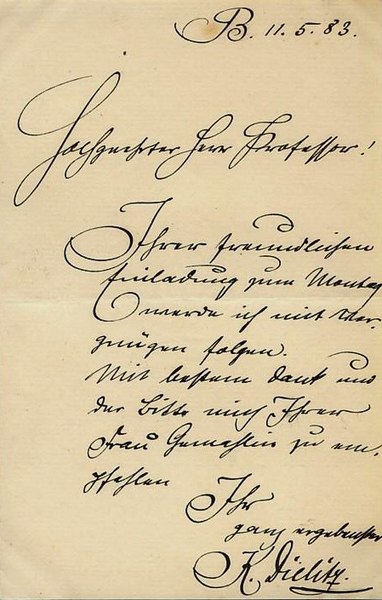 B. 11. 5. 83.
Hochgeehrter Herr Professor!
Ihrer freundlichen
Einladung zum Montag
werde ich mit Ver-
gnügen folgen.
Mit bestem Dank und
der Bitte mich Ihrer
Frau Gemahlin zu em-
pfehlen
Ihr
ganz ergebenster
K. Dielitz.